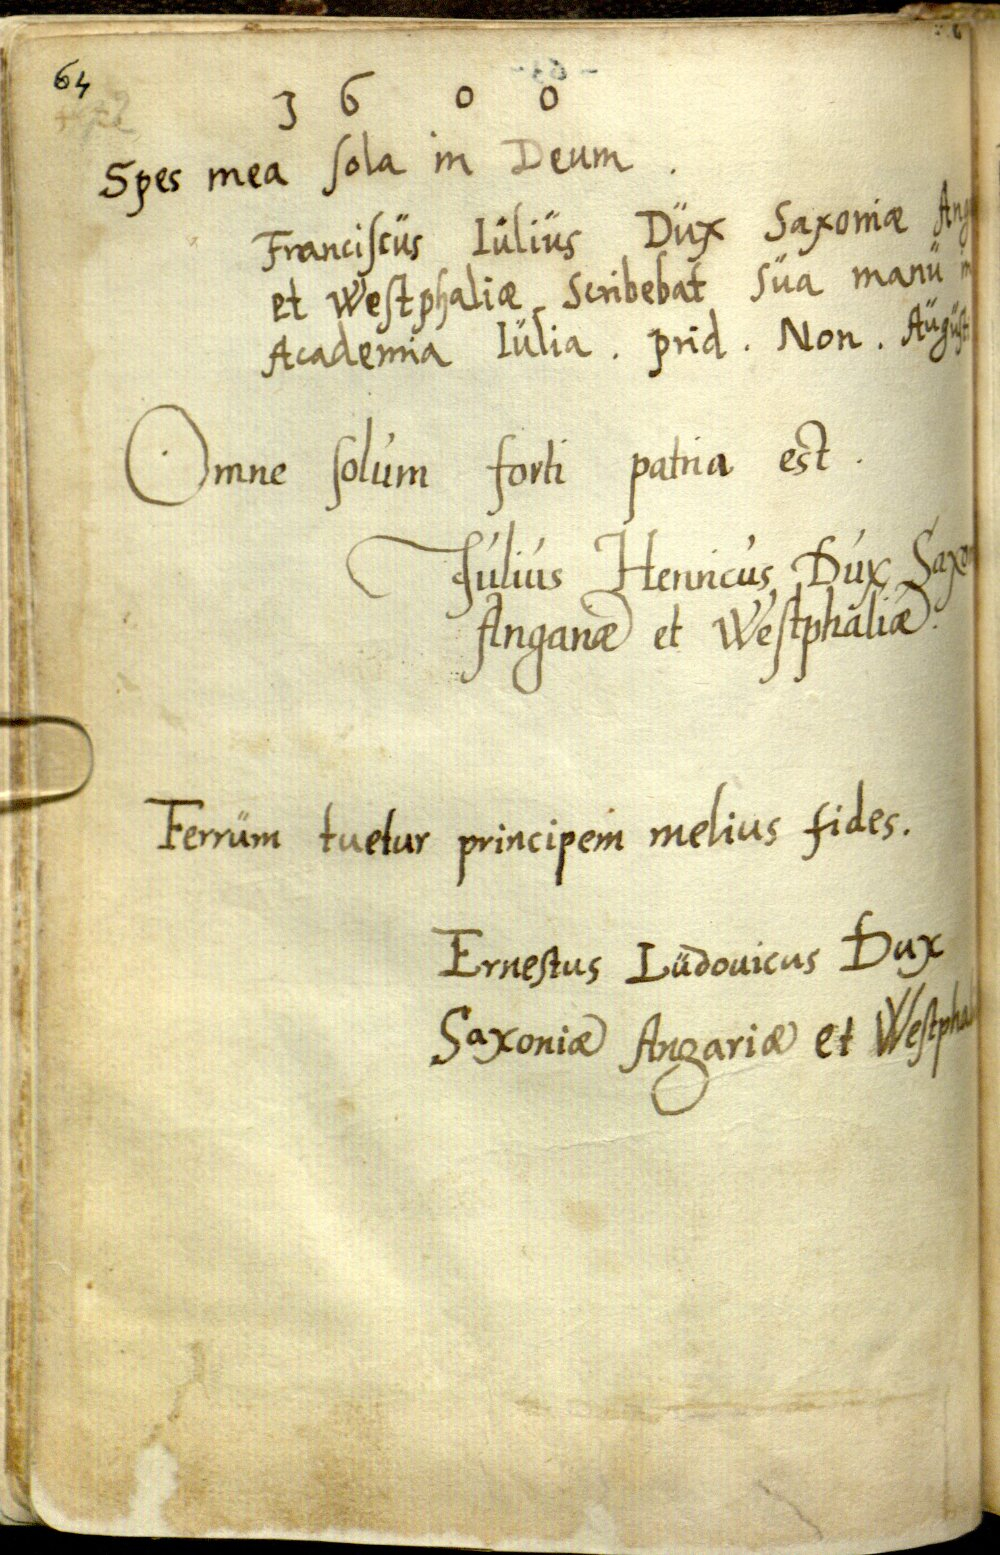 64
1 6 0 0
Spes mea sola in Deum.
Franciscüs Iülius Düx Saxoniæ Ang
et Westphaliæ Scribebat Süa manü in
Academia Iülia. prid. Non. Aügüsti
Omne solum forti patria est.
Julius Henricus Dux Saxon
Angariæ et Westphaliæ.
Ferrüm tuetur principem melius fides.
Ernestus Lüdovicus Dux
Saxoniæ Angariæ et Westphal